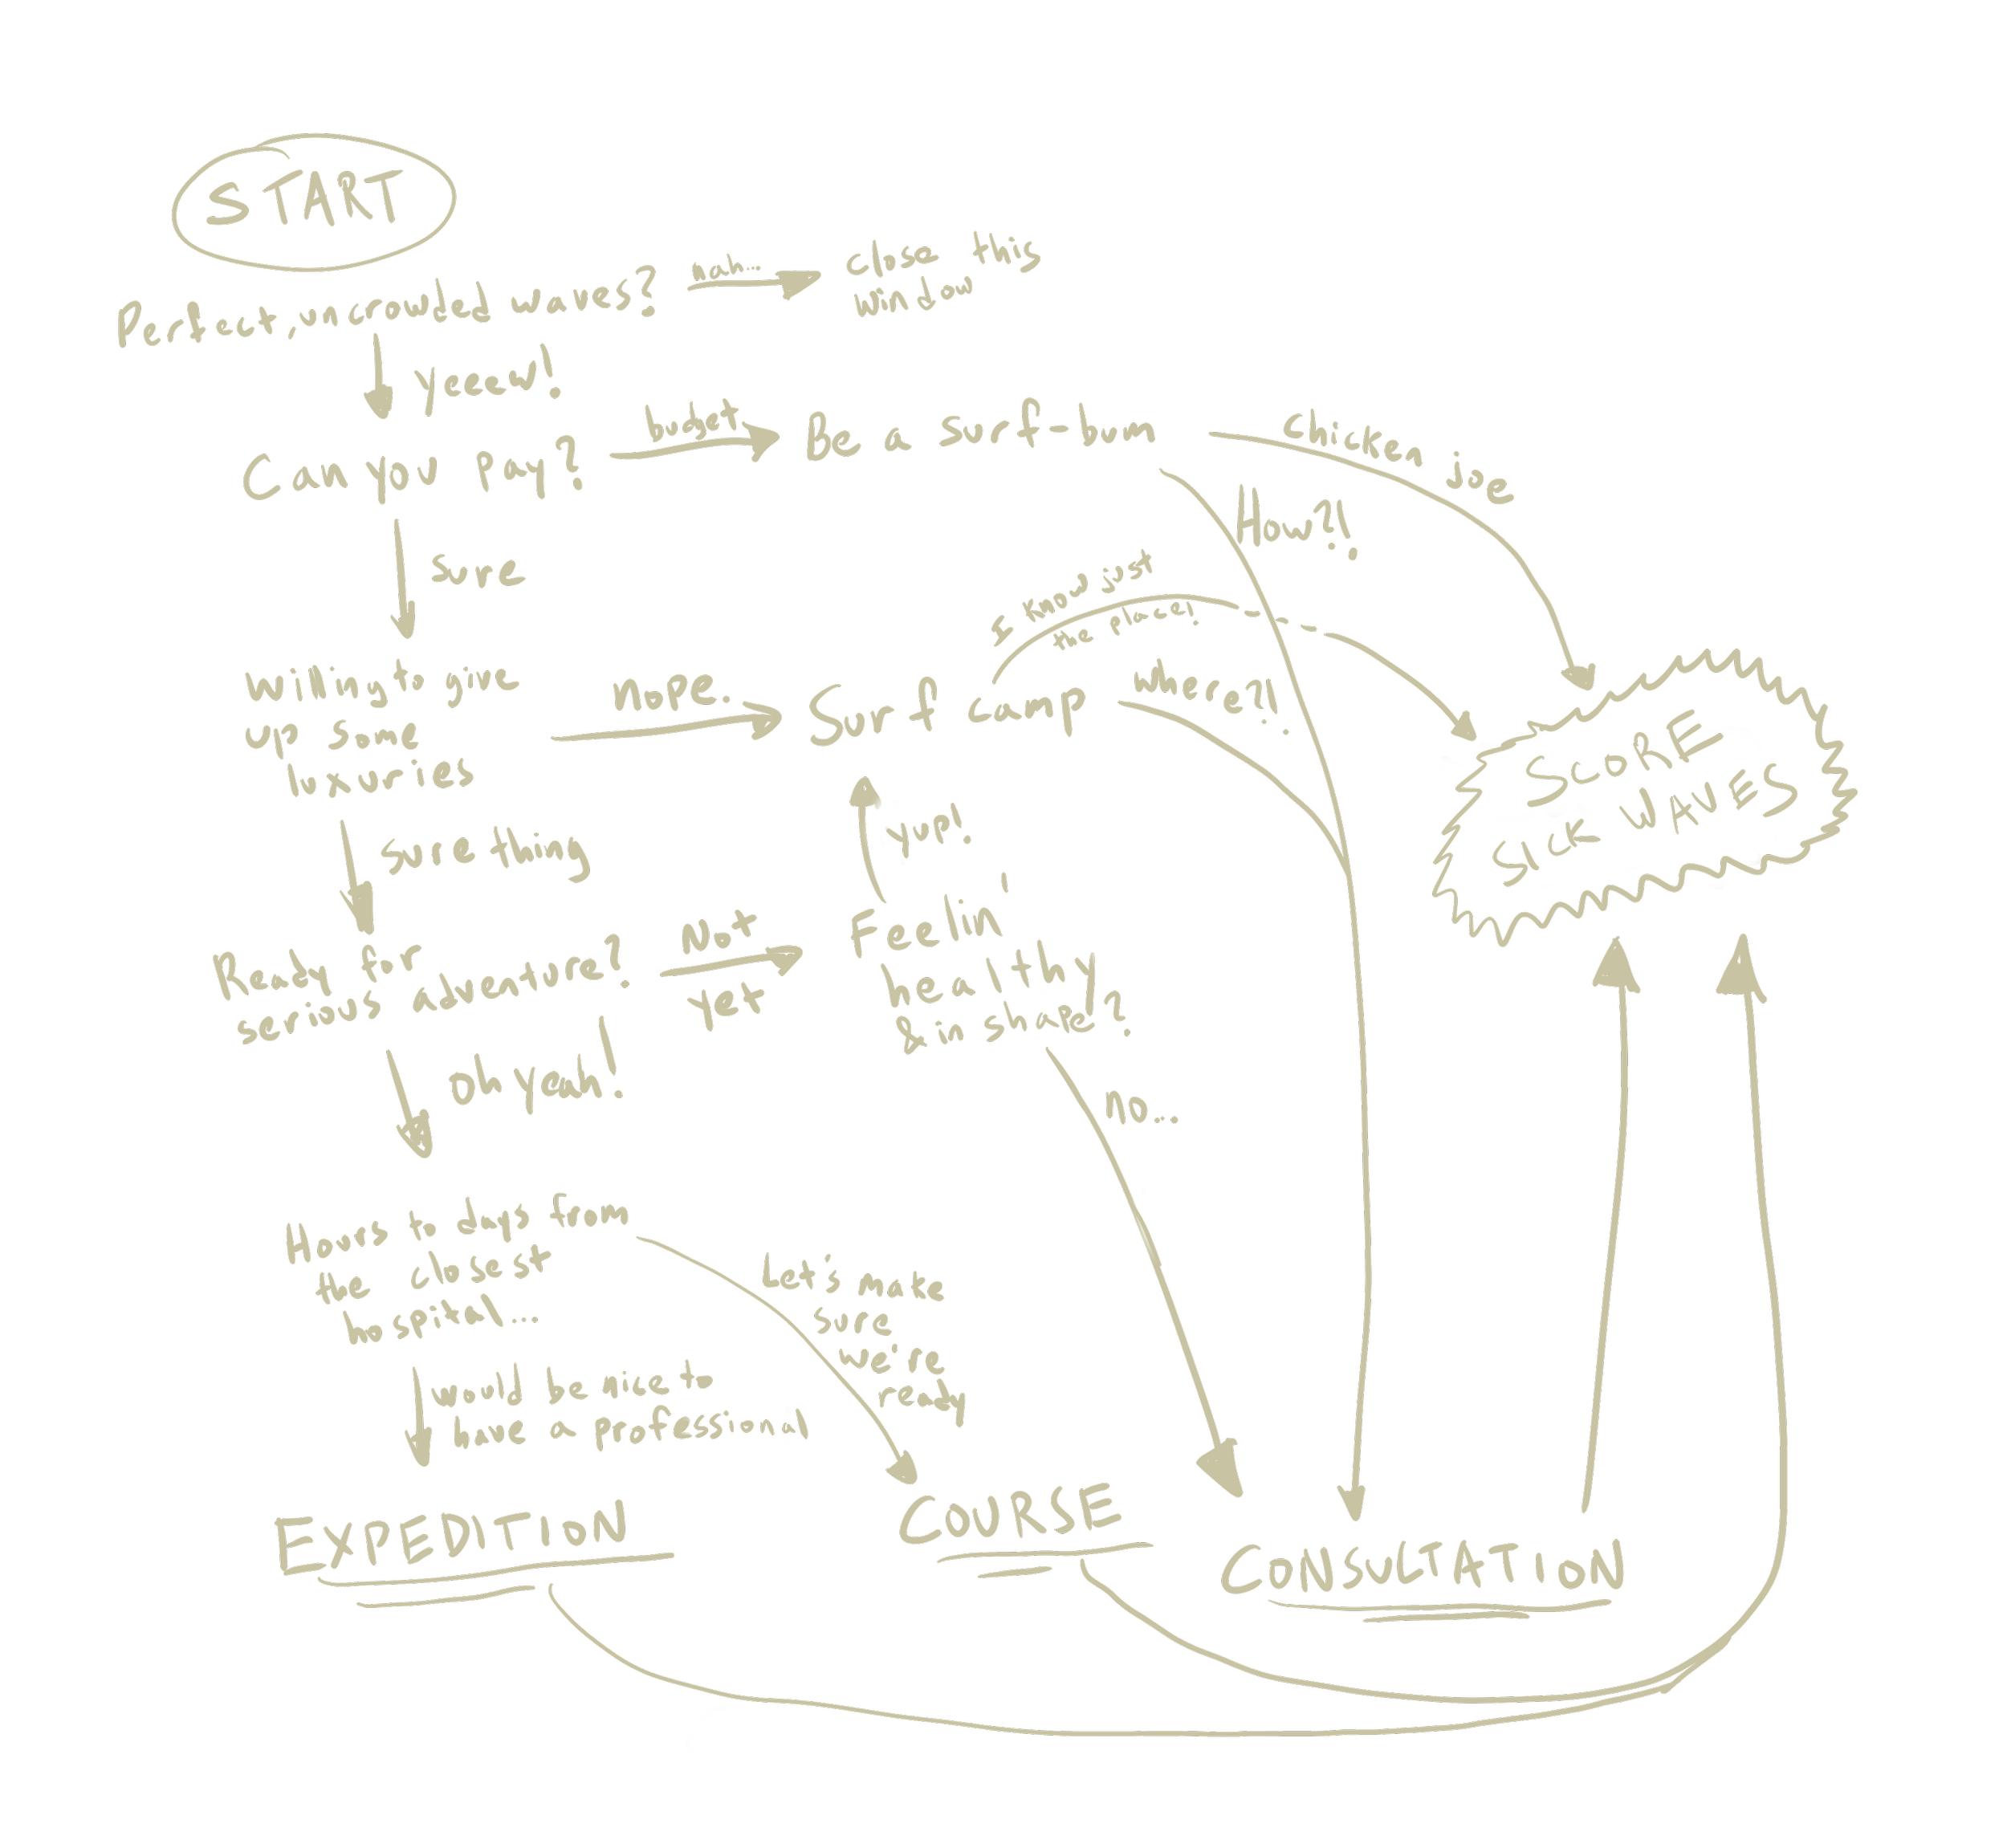 START
Perfect, uncrowded waves?
nah...
close this
window
yeeew!
Can you pay?
budget
Be a surf-bum
chicken joe
How?!
sure
I know just
the place!
Willing to give
up some
luxuries
nope.
Surf camp
where?!
SCORE
SICK WAVES
sure thing
yup!
Ready for
serious adventure?
Not
yet
Feelin'
healthy
& in shape?
oh yeah!
no...
Hours to days from
the closest
hospital...
Let's make
sure
we're
ready
would be nice to
have a professional
EXPEDITION
COURSE
CONSULTATION